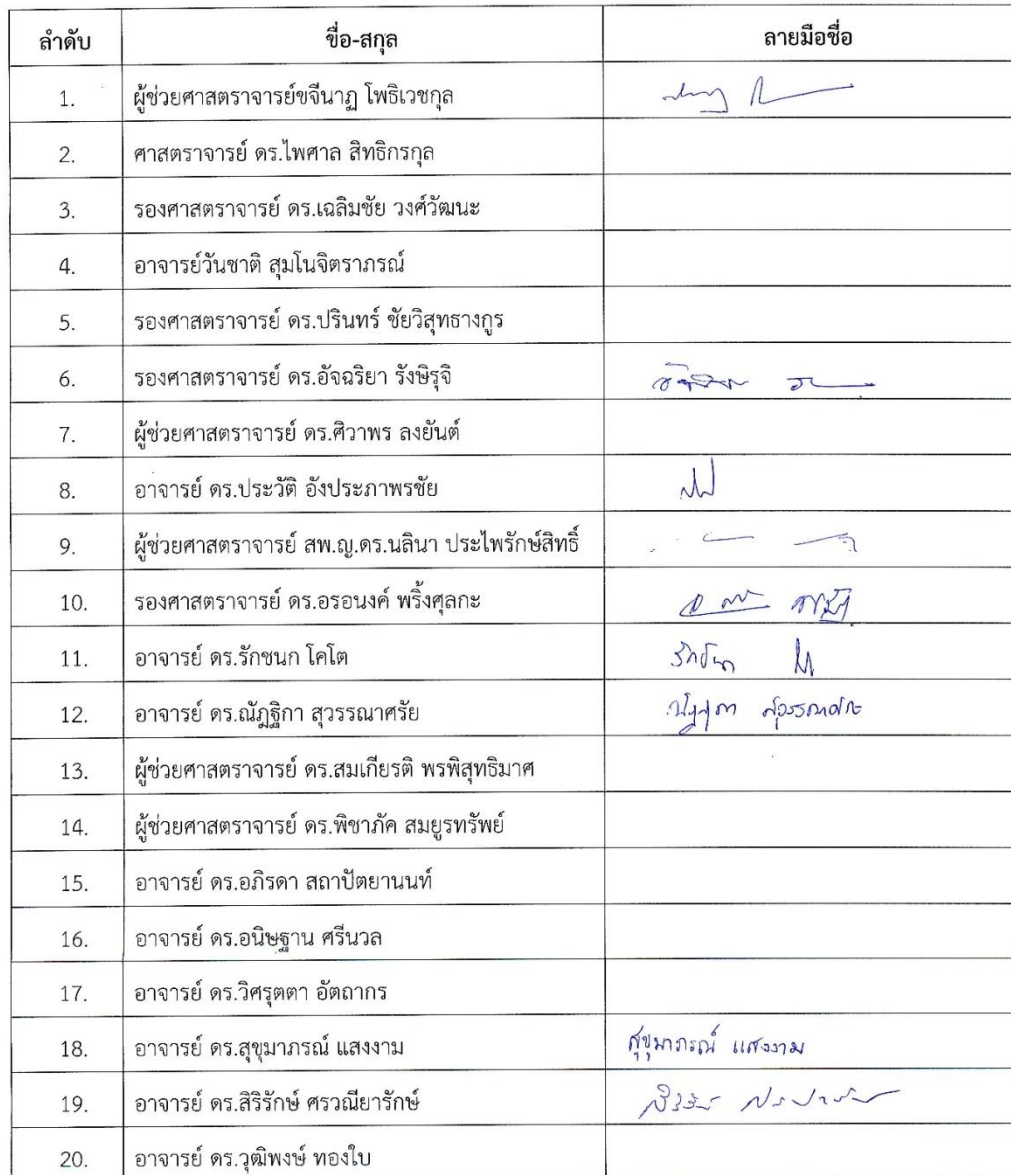 ลำดับ ชื่อ-สกุล ลายมือชื่อ
1. ผู้ช่วยศาสตราจารย์ขจีนาฏ โพธิเวชกุล
2. ศาสตราจารย์ ดร.ไพศาล สิทธิกรกุล
3. รองศาสตราจารย์ ดร.เฉลิมชัย วงศ์วัฒนะ
4. อาจารย์วันชาติ สุมโนจิตราภรณ์
5. รองศาสตราจารย์ ดร.ปรินทร์ ชัยวิสุทธางกูร
6. รองศาสตราจารย์ ดร.อัจฉริยา รังษิรุจิ
7. ผู้ช่วยศาสตราจารย์ ดร.ศิวาพร ลงยันต์
8. อาจารย์ ดร.ประวัติ อังประภาพรชัย
9. ผู้ช่วยศาสตราจารย์ สพ.ญ.ดร.นลินา ประไพรักษ์สิทธิ์
10. รองศาสตราจารย์ ดร.อรอนงค์ พริ้งศุลกะ
11. อาจารย์ ดร.รักชนก โคโต
12. อาจารย์ ดร.ณัฏฐิกา สุวรรณาศรัย
13. ผู้ช่วยศาสตราจารย์ ดร.สมเกียรติ พรพิสุทธิมาศ
14. ผู้ช่วยศาสตราจารย์ ดร.พิชาภัค สมยูรทรัพย์
15. อาจารย์ ดร.อภิรดา สถาปัตยานนท์
16. อาจารย์ ดร.อนิษฐาน ศรีนวล
17. อาจารย์ ดร.วิศรุตตา อัตถากร
18. อาจารย์ ดร.สุขุมาภรณ์ แสงงาม สุขุมาภรณ์ แสงงาม
19. อาจารย์ ดร.สิริรักษ์ ศรวณียารักษ์
20. อาจารย์ ดร.วุฒิพงษ์ ทองใบ